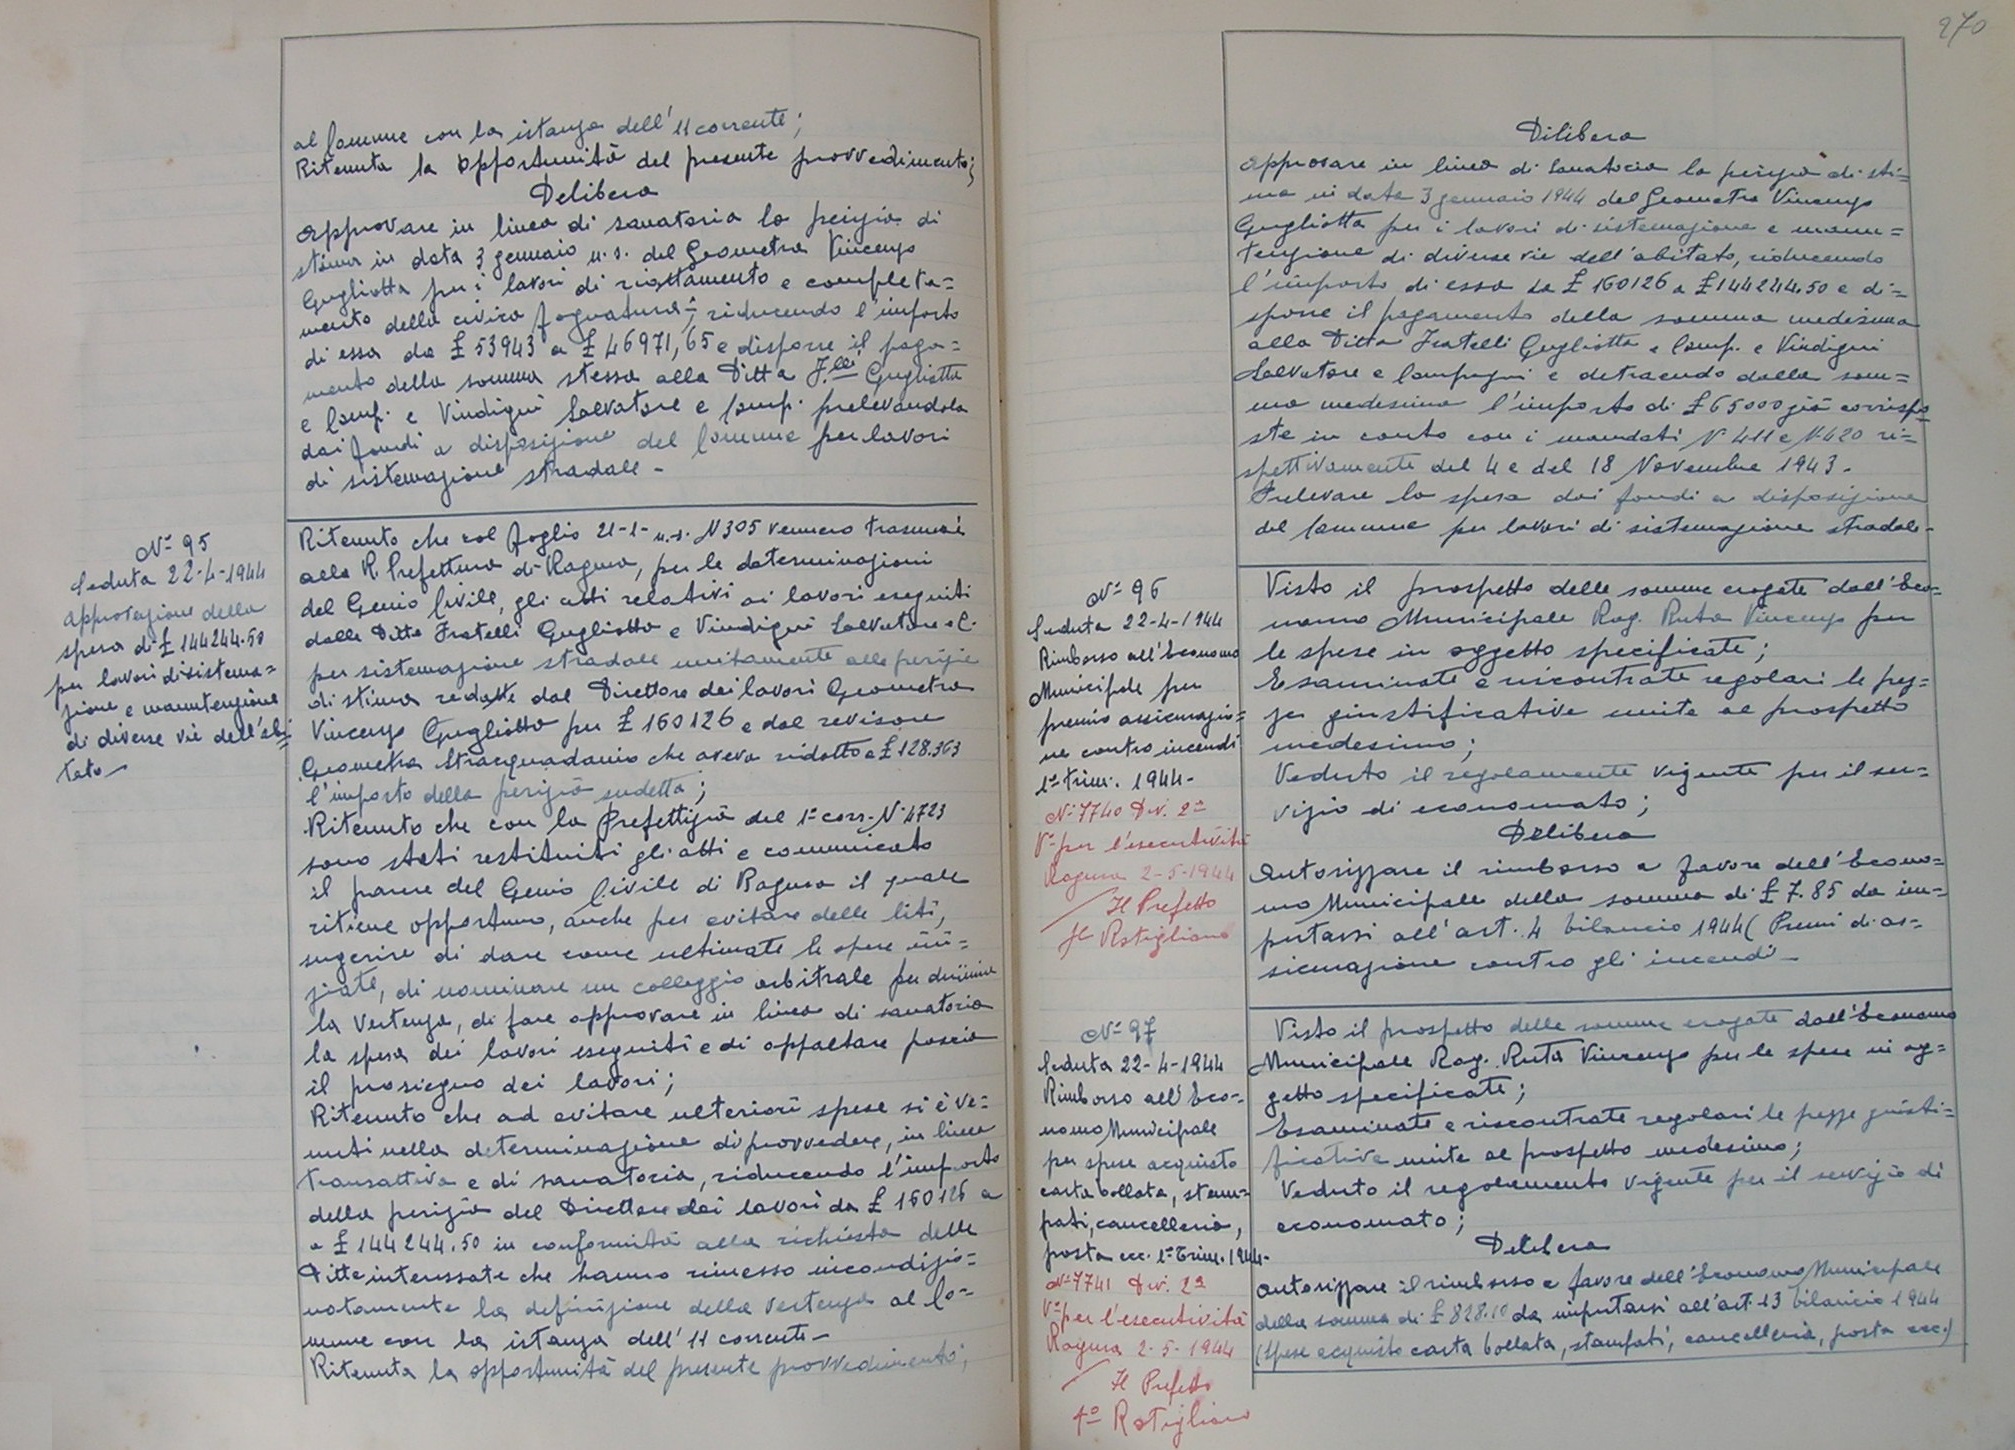 al Comune con la istanza dell'11 corrente;
Ritenuta la opportunità del presente provvedimento;
Delibera
approvare in linea di sanatoria la perizia di
stima in data 3 gennaio u.s. del Geometra Vincenzo
Gugliotta per i lavori di riattamento e completa=
mento della civica fognatura; riducendo l'importo
di essa da £ 53943 a £ 46971,65 e disporre il paga=
mento della somma stessa alla Ditta F.lli Gugliotta
e Comp. e Vindigni Salvatore e Comp. prelevandola
dai fondi a disposizione del Comune per lavori
di sistemazione stradale -
Nº 95
Seduta 22-4-1944
approvazione della
spesa di £ 144244.50
per lavori di sistema=
zione e manutenzione
di diverse vie dell'abi=
tato -
Ritenuto che col foglio 21-1-u.s. N 305 vennero trasmessi
alla R. Prefettura di Ragusa, per le determinazioni
del Genio Civile, gli atti relativi ai lavori eseguiti
dalle Ditte Fratelli Gugliotta e Vindigni Salvatore e C.
per sistemazione stradale unitamente alle perizie
di stima redatte dal Direttore dei lavori Geometra
Vincenzo Gugliotta per £ 160126 e dal revisore
Geometra Stracquadanio che aveva ridotto a £ 128.363
l'importo della perizia sudetta;
Ritenuto che con la Prefettizia del 1º corr. Nº 4723
sono stati restituiti gli atti e comunicato
il parere del Genio Civile di Ragusa il quale
ritiene opportuno, anche per evitare delle liti,
sugerire di dare come ultimate le opere ini=
ziate, di nominare un colleggio arbitrale per dirimere
la vertenza, di fare approvare in linea di sanatoria
la spesa dei lavori eseguiti e di appaltare poscia
il prosieguo dei lavori;
Ritenuto che ad evitare ulteriori spese si è ve=
nuti nella determinazione di provvedere, in linea
transattiva e di sanatoria, riducendo l'importo
della perizia del Direttore dei lavori da £ 160126 a
a £ 144244.50 in conformità alla richiesta delle
Ditte interessate che hanno rimesso incondizio=
natamente la definizione della vertenza al Co=
mune con la istanza dell'11 corrente -
Ritenuta la opportunità del presente provvedimento;
270
Dilibera
approvare in linea di sanatoria la perizia di sti=
ma in data 3 gennaio 1944 del Geometra Vincenzo
Gugliotta per i lavori di sistemazione e manu=
tenzione di diverse vie dell'abitato, riducendo
l'importo di essa da £ 160126 a £ 144244.50 e di=
sporre il pagamento della somma medesima
alla Ditta Fratelli Gugliotta e Comp. e Vindigni
Salvatore e Compagni e detraendo dalla som=
ma medesima l'importo di £ 65000 già corrispo
ste in conto con i mandati N 411 e N 420 ri=
spettivamente del 4 e del 18 Novembre 1943 -
Prelevare la spesa dai fondi a disposizione
del Comune per lavori di sistemazione stradale -
Nº 96
Seduta 22-4-1944
Rimborso all'Economo
Municipale per
premio assicurazio=
ne contro incendi
1º Trim. 1944 -
Nº 7740 Div. 2ª
Vº per l'esecutività
Ragusa 2-5-1944
Il Prefetto
Rotigliano
Visto il prospetto delle somme erogate dall'Eco=
nomo Municipale Rag. Ruta Vincenzo per
le spese in oggetto specificate;
Esaminate e riscontrate regolari le pez=
ze giustificative unite al prospetto
medesimo;
Veduto il regolamento vigente per il ser=
vizio di economato;
Delibera
autorizzare il rimborso a favore dell'Econo=
mo Municipale della somma di £ 7.85 da im=
putarsi all'art. 4 bilancio 1944 (Premi di as=
sicurazione contro gli incendi -
Nº 97
Seduta 22-4-1944
Rimborso all'Eco=
nomo Municipale
per spese acquisto
carta bollata, stam=
pati, cancelleria,
posta ecc. 1º Trim. 1944 -
Nº 7741 Div. 2ª
Vº per l'esecutività
Ragusa 2-5-1944
Il Prefetto
fº Rotigliano
Visto il prospetto delle somme erogate dall'Economo
Municipale Rag. Ruta Vincenzo per le spese in og=
getto specificate;
Esaminate e riscontrate regolari le pezze giusti=
ficative unite al prospetto medesimo;
Veduto il regolamento vigente per il servizio di
economato;
Delibera
autorizzare il rimborso a favore dell'Economo Municipale
della somma di £ 828.10 da imputarsi all'art. 13 bilancio 1944
(Spese acquisto carta bollata, stampati, cancelleria, posta ecc.)